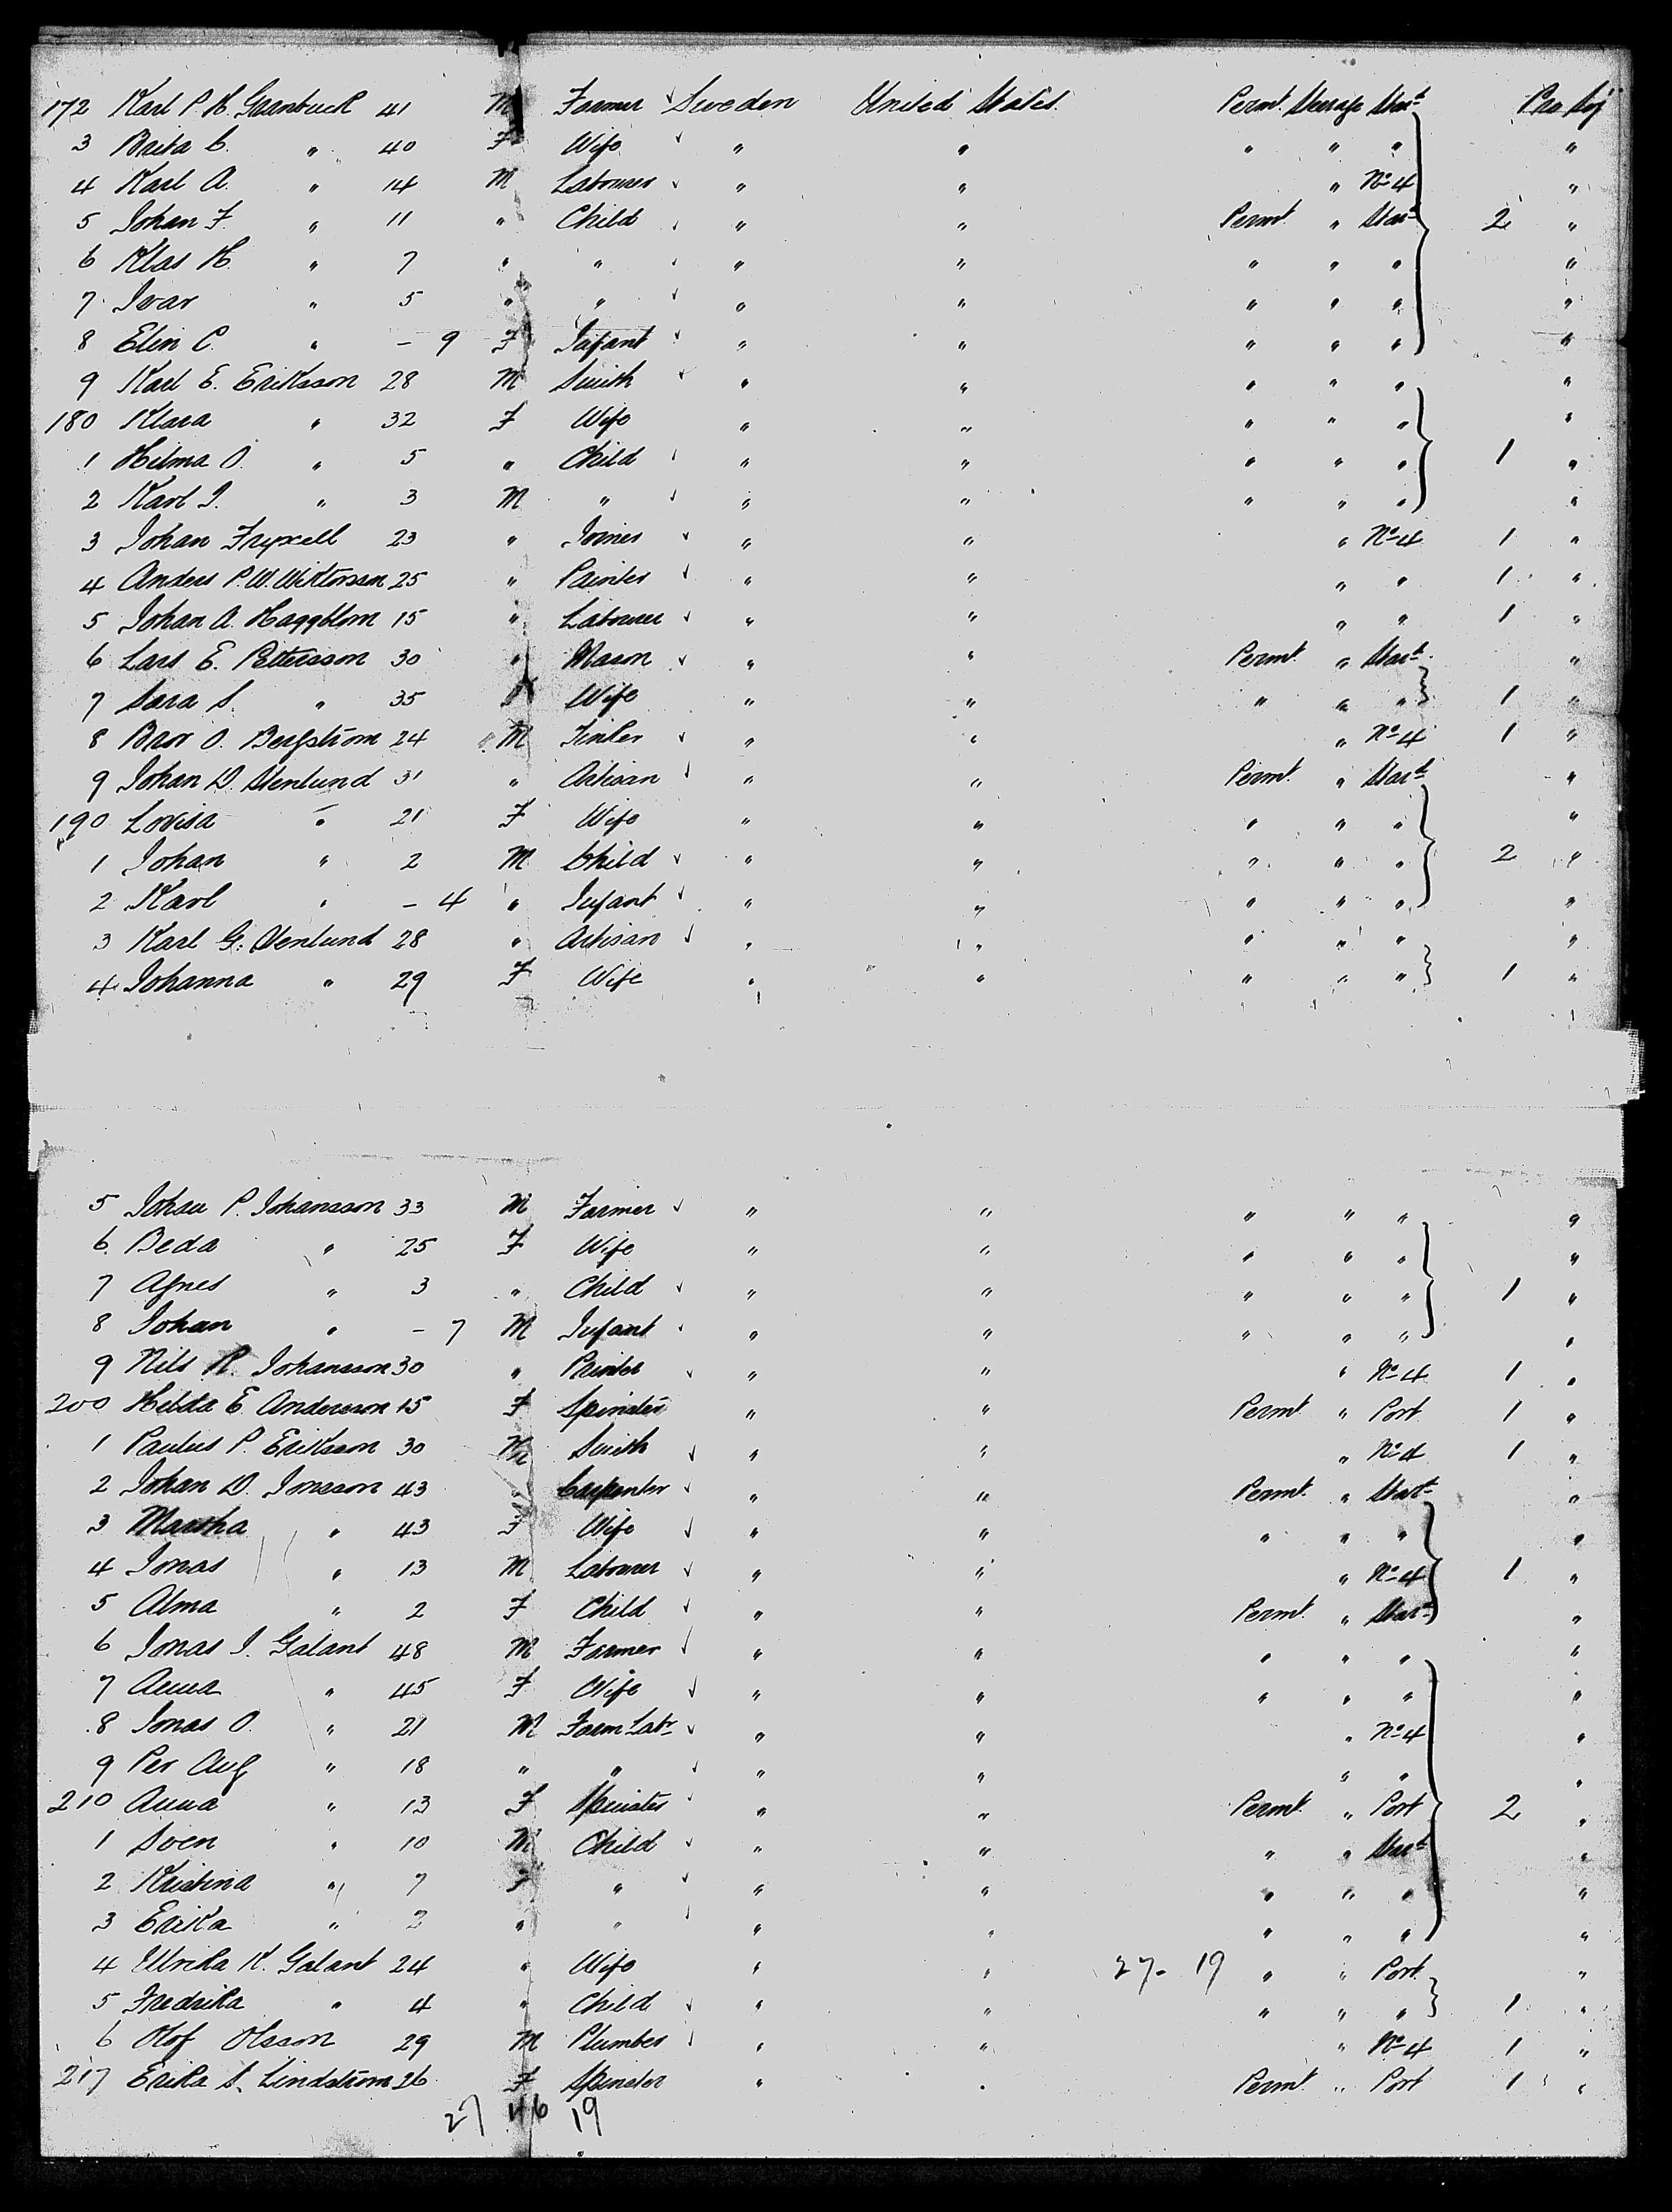 172 Karl P. H. Granbuck 41 M Farmer Sweden United States Permt. Steerage Star'd Pro Sej
3 Brita C. " 40 F Wife " " " " " "
4 Karl A. " 14 M Labourer " " " No 4 "
5 Johan F. " 11 " Child " " Permt. " Star'd 2 "
6 Klas H. " 7 " " " " " " " "
7 Ivar " 5 " " " " " " " "
8 Elin C. " - 9 F Infant " " " " " "
9 Karl E. Eriksson 28 M Smith " " " " " "
180 Klara " 32 F Wife " " " " " "
1 Hilma O. " 5 " Child " " " " " 1 "
2 Karl I. " 3 M " " " " " " "
3 Johan Fryxell 23 " Joiner " " " No 4 1 "
4 Anders P. W. Wiktorsson 25 " Painter " " " " 1 "
5 Johan A. Haggblom 15 " Labourer " " " " 1 "
6 Lars E. Pettersson 30 " Mason " " Permt. " Star'd "
7 Sara S. " 35 F Wife " " " " " 1 "
8 Bror O. Bergström 24 M Tinler " " " No 4 1 "
9 Johan D. Stenlund 31 " Artisan " " Permt. " Star'd "
190 Lovisa " 21 F Wife " " " " " "
1 Johan " 2 M Child " " " " " 2 "
2 Karl " - 4 " Infant " " " " " "
3 Karl G. Stenlund 28 " Artisan " " " " " "
4 Johanna " 29 F Wife " " " " " 1 "
5 Johan P. Johansson 33 M Farmer " " " " " "
6 Beda " 25 F Wife " " " " " "
7 Agnes " 3 " Child " " " " " 1 "
8 Johan " - 7 M Infant " " " " " "
9 Nils R. Johansson 30 " Printer " " " No 4 1 "
200 Hilda E. Andersson 15 F Spinster " " Permt. " Port 1 "
1 Paulus P. Eriksson 30 M Smith " " " No 4 1 "
2 Johan D. Jonsson 43 " Carpenter " " Permt. " Star'd "
3 Martha " 43 F Wife " " " " " "
4 Jonas " 13 M Labourer " " " No 4 1 "
5 Alma " 2 F Child " " Permt. " Star'd "
6 Jonas J. Galant 48 M Farmer " " " " " "
7 Anna " 45 F Wife " " " " " "
8 Jonas O. " 21 M Farm Labr " " " No 4 "
9 Per Aug " 18 " " " " " " "
210 Anna " 13 F Spinster " " Permt. " Port 2 "
1 Sven " 10 M Child " " " " Star'd "
2 Kristina " 7 F " " " " " " "
3 Erika " 2 " " " " " " " "
4 Ulrika K. Galant 24 " Wife " " 27- 19 " " Port "
5 Fredrika " 4 " Child " " " " " 1 "
6 Olof Olsson 29 M Plumber " " " No 4 1 "
217 Erika S. Lindström 26 F Spinster " " Permt. " Port 1 "
27 46 19